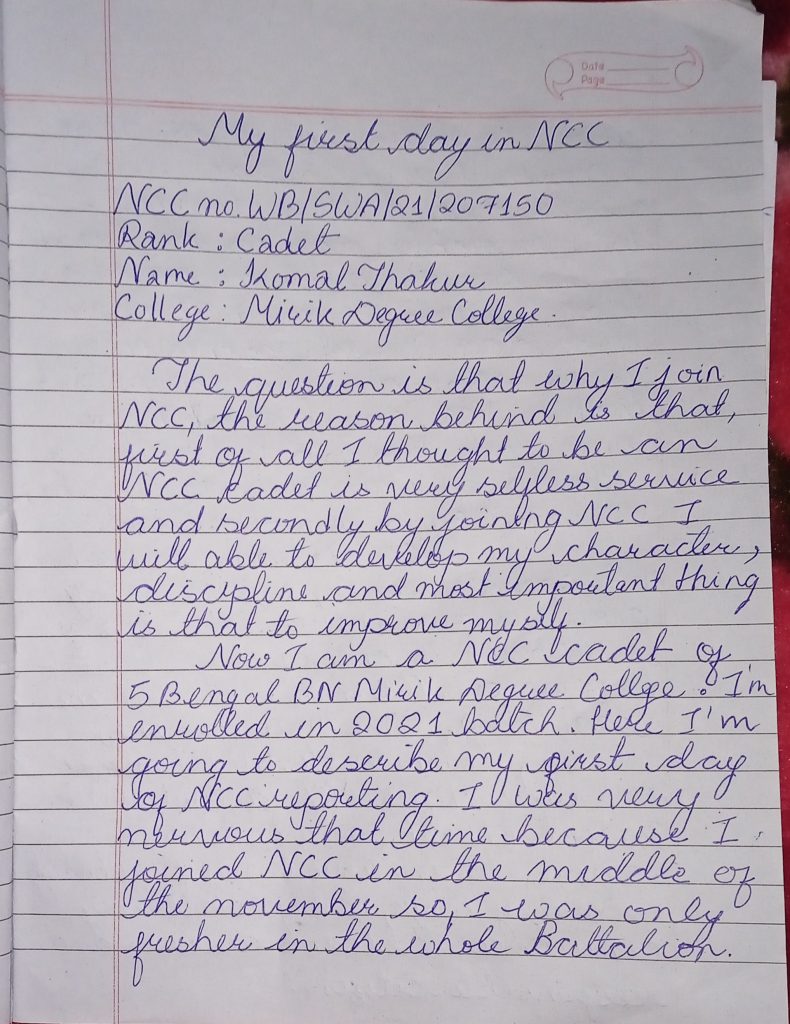 Date
Page
My first day in NCC
NCC no. WB/SWA/21/207150
Rank : Cadet
Name : Komal Thakur
College : Mirik Degree College.
The question is that why I join
NCC, the reason behind is that,
first of all I thought to be an
NCC cadet is very selfless service
and secondly by joining NCC I
will able to develop my character,
discipline and most important thing
is that to improve myself.
Now I am a NCC cadet of
5 Bengal BN Mirik Degree Collge. I'm
enrolled in 2021 batch. Here I'm
going to describe my first day
of NCC reporting. I was very
nervous that time because I
joined NCC in the middle of
the november so, I was only
fresher in the whole Battalion.